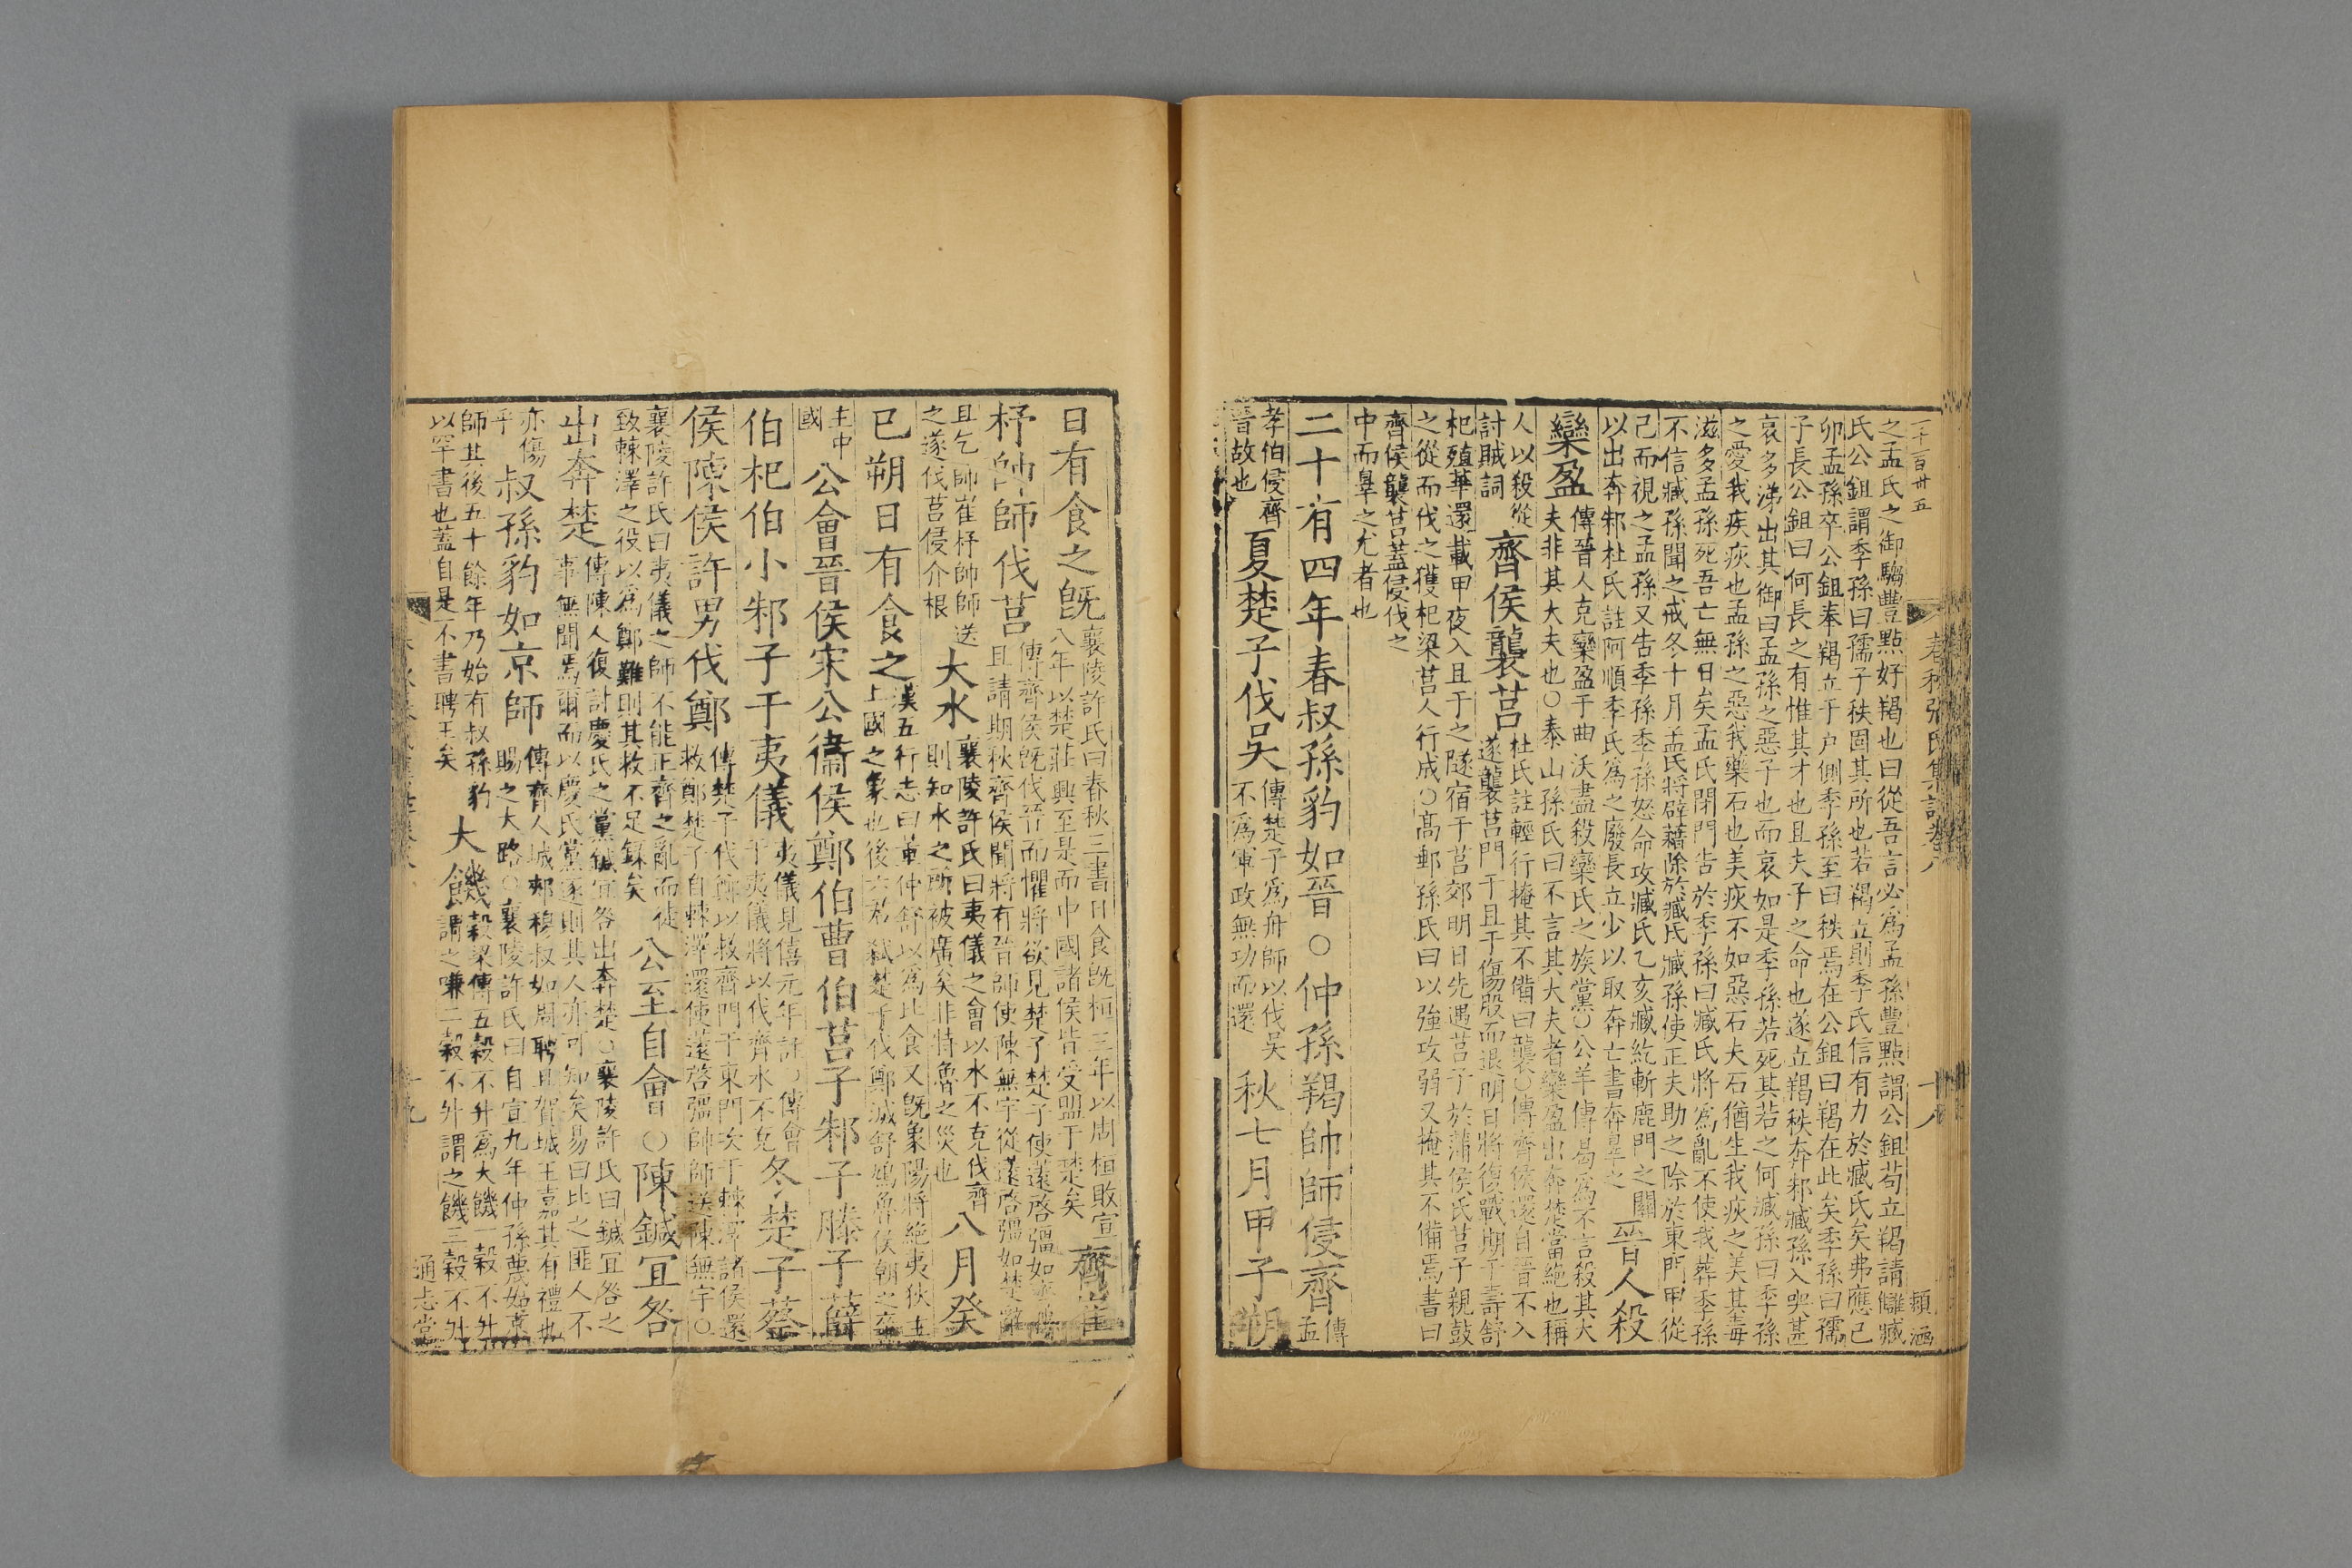 之孟氏之御騶豐點好羯也曰從吾言必為孟孫豐點謂公鉏苟立羯請讎臧
氏公鉏謂季孫曰孺子秩固其所也若羯立則季氏信有力於臧氏矣弗應己
卯孟孫卒公鉏奉羯立于户側季孫至曰秩焉在公鉏曰羯在此矣季孫曰孺
子長公鉏曰何長之有惟其才也且夫子之命也遂立羯秩奔邾臧孫入哭甚
哀多涕出其御曰孟孫之惡子也而哀如是季孫若死其若之何臧孫曰季孫
之愛我疾疢也孟孫之惡我藥石也美疢不如惡石夫石猶生我疢之美其毒
滋多孟孫死吾亡無日矣孟氏閉門告於季孫曰臧氏將為亂不使我葬季孫
不信臧孫聞之戒冬十月孟氏將辟藉除於臧氏臧孫使正夫助之除於東門甲從
己而視之孟孫又告季孫季孫怒命攻臧氏乙亥臧紇斬鹿門之關
以出奔邾杜氏註阿順季氏為之廢長立少以取奔亡書奔辠之
晉人殺
欒盈
傳晉人克欒盈于曲沃盡殺欒氏之族黨○公羊傳曷為不言殺其大
夫非其大夫也○泰山孫氏曰不言其大夫者欒盈出奔楚當絶也稱
人以殺從
討賊詞
齊侯襲莒
杜氏註輕行掩其不備曰襲○傳齊侯還自晉不入
遂襲莒門于且于傷股而退明日將復戰期于壽舒
杞殖華還載甲夜入且于之隧宿于莒郊明日先遇莒子於蒲侯氏莒子親鼓
之從而伐之獲杞梁莒人行成○髙郵孫氏曰以強攻弱又掩其不備焉書曰
齊侯襲莒蓋侵伐之
中而辠之尤者也
二十有四年春叔孫豹如晉○仲孫羯帥師侵齊
傳孟
孝伯侵齊
晉故也
夏楚子伐吴
傳楚子為舟師以伐吴
不為軍政無功而還
秋七月甲子朔
春秋張氏集註卷八
十八
日有食之旣
襄陵許氏曰春秋三書日食旣桓三年以周桓敗宣
八年以楚莊興至是而中國諸侯皆受盟于楚矣
齊崔
杼帥師伐莒
傳齊侯旣伐晉而懼將欲見楚子楚子使薳啓彊如齊聘
且請期秋齊侯聞將有晉師使陳無宇從薳啓彊如楚辭
且乞師崔杼帥師送
之遂伐莒侵介根
大水
襄陵許氏曰夷儀之會以水不克伐齊
則知水之所被廣矣非特魯之災也
八月癸
巳朔日有食之
漢五行志曰董仲舒以為比食又旣象陽將絶夷狄主
上國之象也後六君弑楚子伐鄭滅舒鳩魯侯朝之卒
主中
國
公會晉侯宋公衞侯鄭伯曹伯莒子邾子滕子薛
伯杞伯小邾子于夷儀
夷儀見僖元年註○傳會
于夷儀將以伐齊水不克
冬楚子蔡
侯陳侯許男伐鄭
傳楚子伐鄭以救齊門于東門次于棘澤諸侯還
救鄭楚子自棘澤還使薳啓彊帥師送陳無宇○
襄陵許氏曰夷儀之師不能正齊之亂而徒
致棘澤之役以為鄭難則其救不足録矣
公至自會○陳鍼宜咎
出奔楚
傳陳人復討慶氏之黨鍼宜咎出奔楚○襄陵許氏曰鍼宜咎之
事無聞焉爾而以慶氏黨逐則其人亦可知矣易曰比之匪人不
亦傷
乎
叔孫豹如京師
傳齊人城郟穆叔如周聘且賀城王嘉其有禮也
賜之大路○襄陵許氏曰自宣九年仲孫蔑如京
師其後五十餘年乃始有叔孫豹
以罕書也蓋自是不書聘王矣
大饑
穀梁傳五穀不升為大饑一穀不升
謂之嗛二穀不升謂之饑三穀不升
十九
通志堂